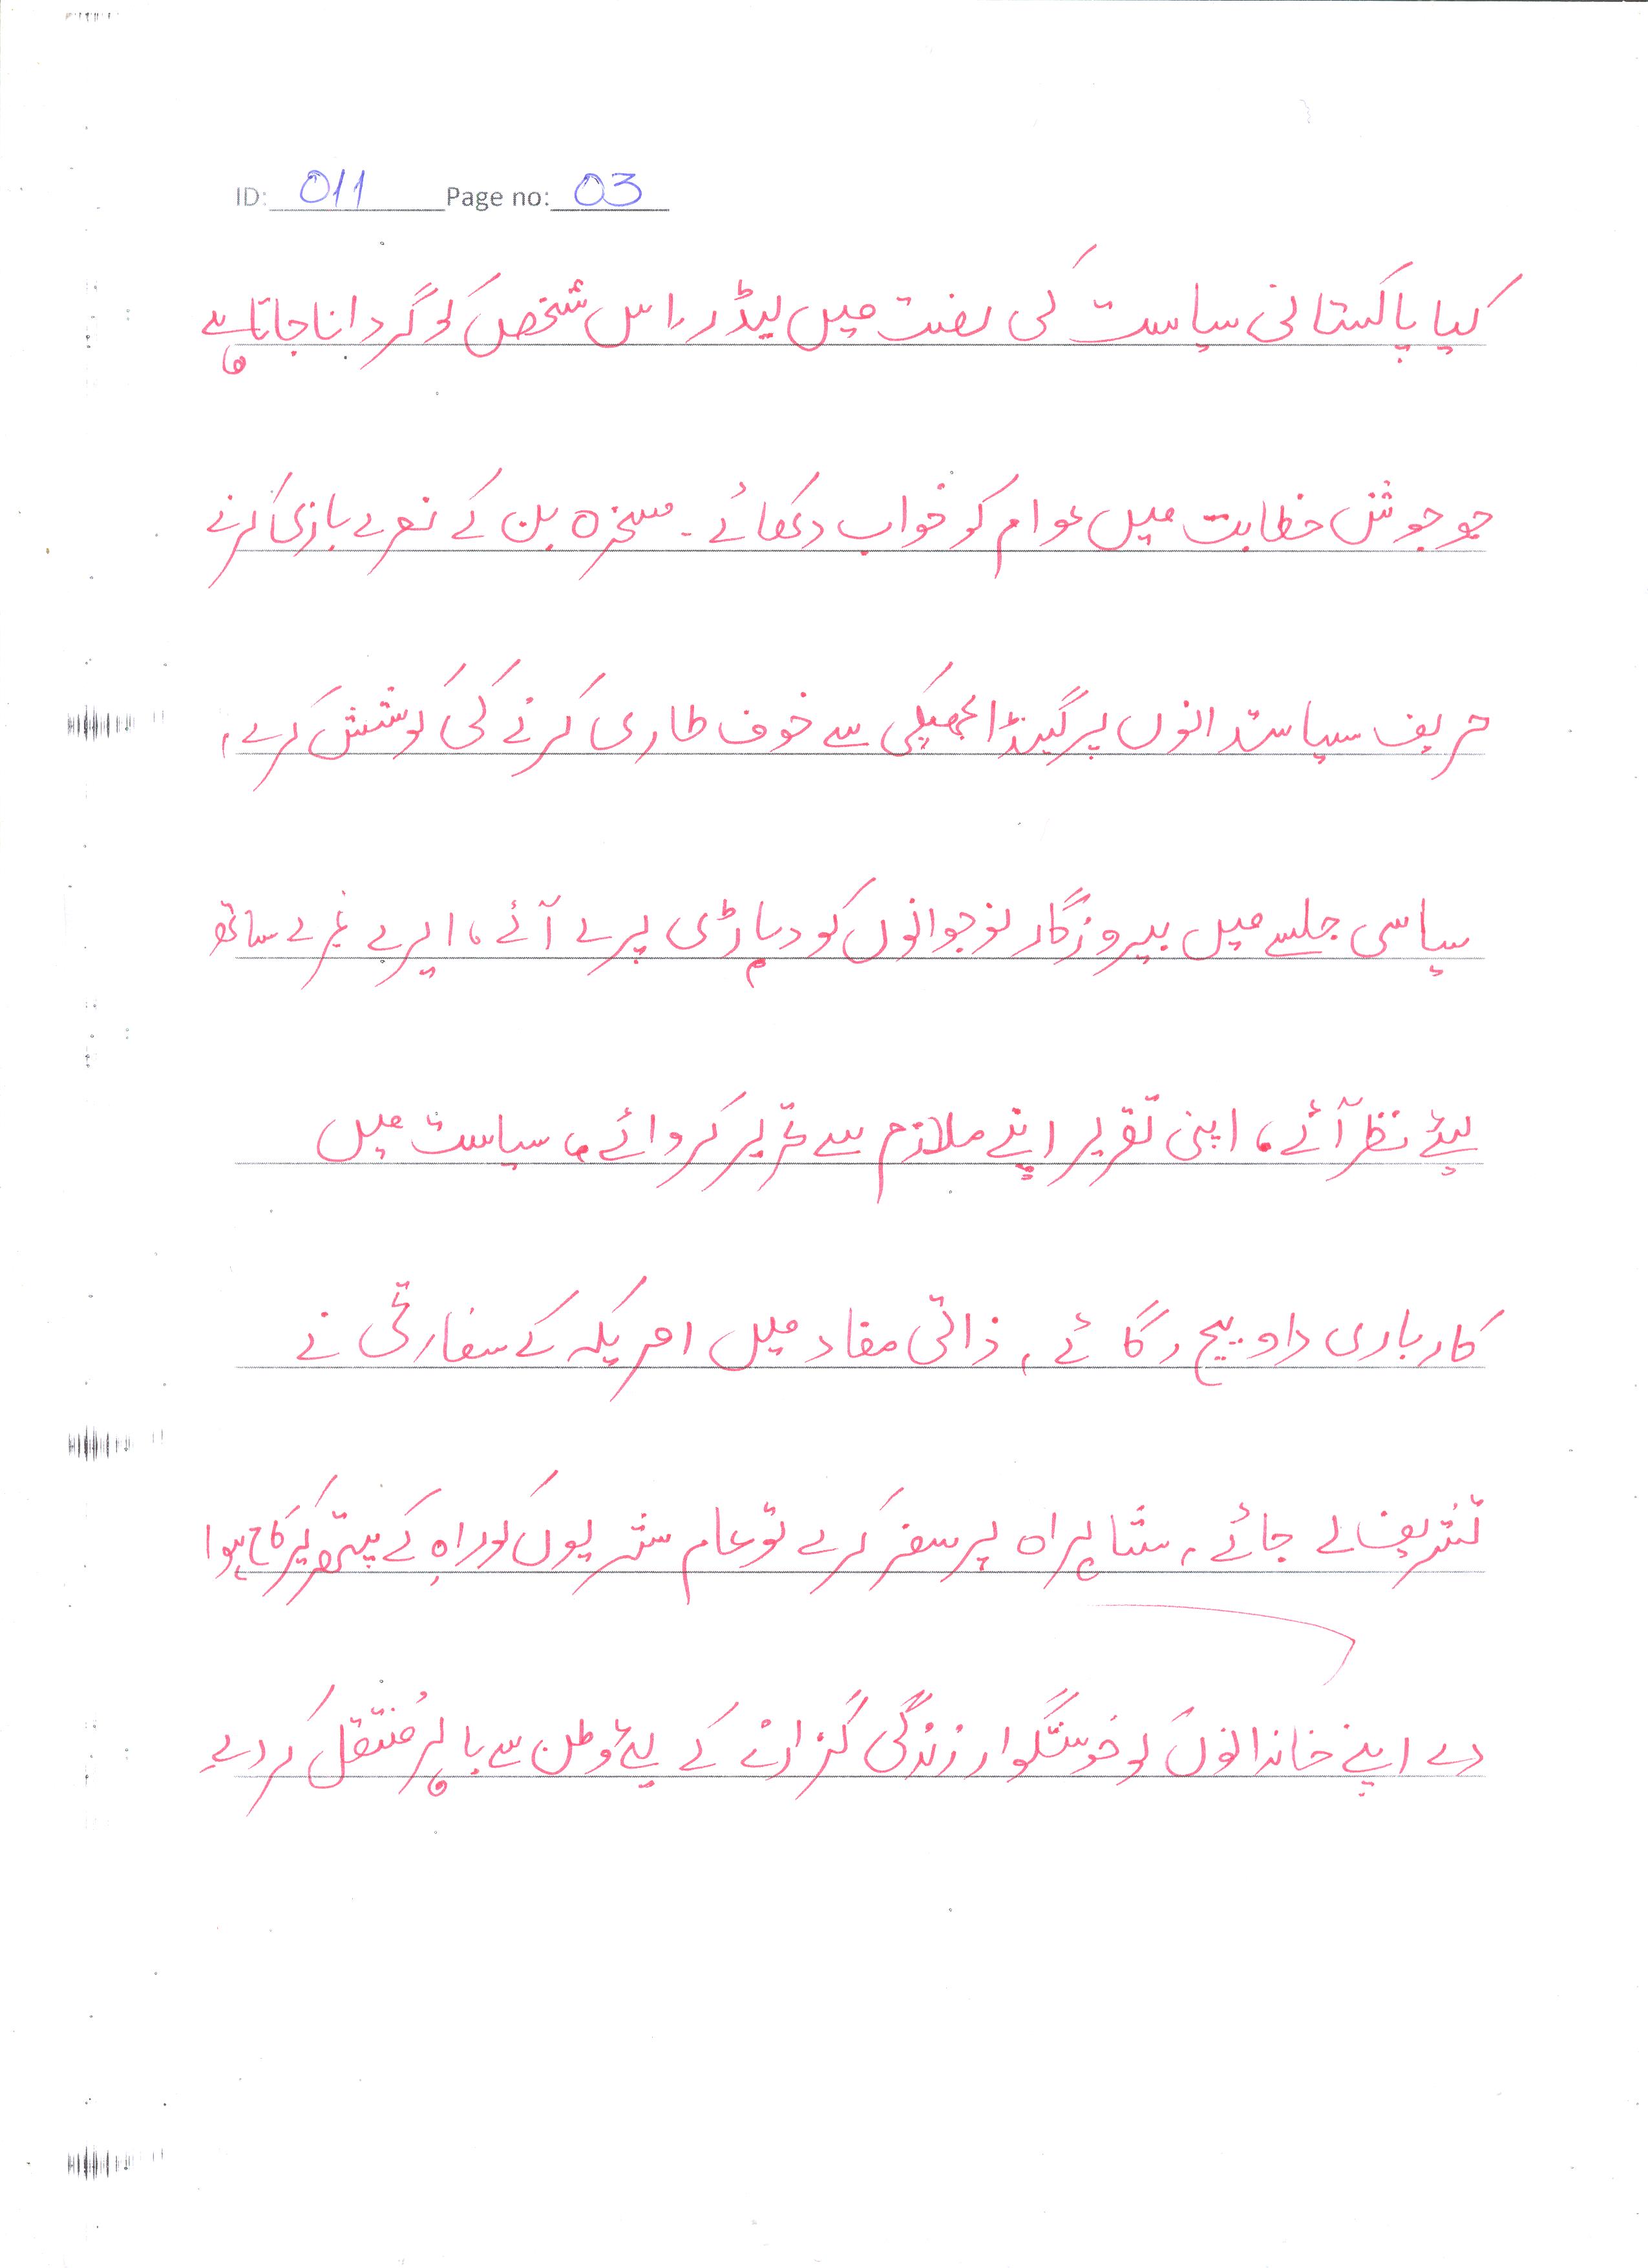 ID: 011 Page no: 03
کیا پاکستانی سیاست کی لغت میں لیڈر اس شخص کو گردانا جاتا ہے
جو جوش خطابت میں عوام کو خواب دکھائے۔ مسخرہ بن کے نعرے بازی کرنے
حریف سیاستدانوں پر گیدڑ بھبکی سے خوف طاری کرنے کی کوشش کرے،
سیاسی جلسے میں بیروزگار نوجوانوں کو دہاڑی پر لے آئے، ایرے غیرے ساتھ
لیئے نظر آئے، اپنی تقریر اپنے ملازم سے تحریر کروائے، سیاست میں
کارباری داو پیچ لگائے، ذاتی مفاد میں امریکہ کے سفارتی نے
تشریف لے جائے، شاہراہ پر سفر کرے تو عام شہریوں کو راہ کے پتھر کیطرح ہوا
دے اپنے خاندانوں کو خوشگوار زندگی گزارنے کے لیئے وطن سے باہر مُنتقل کر دے